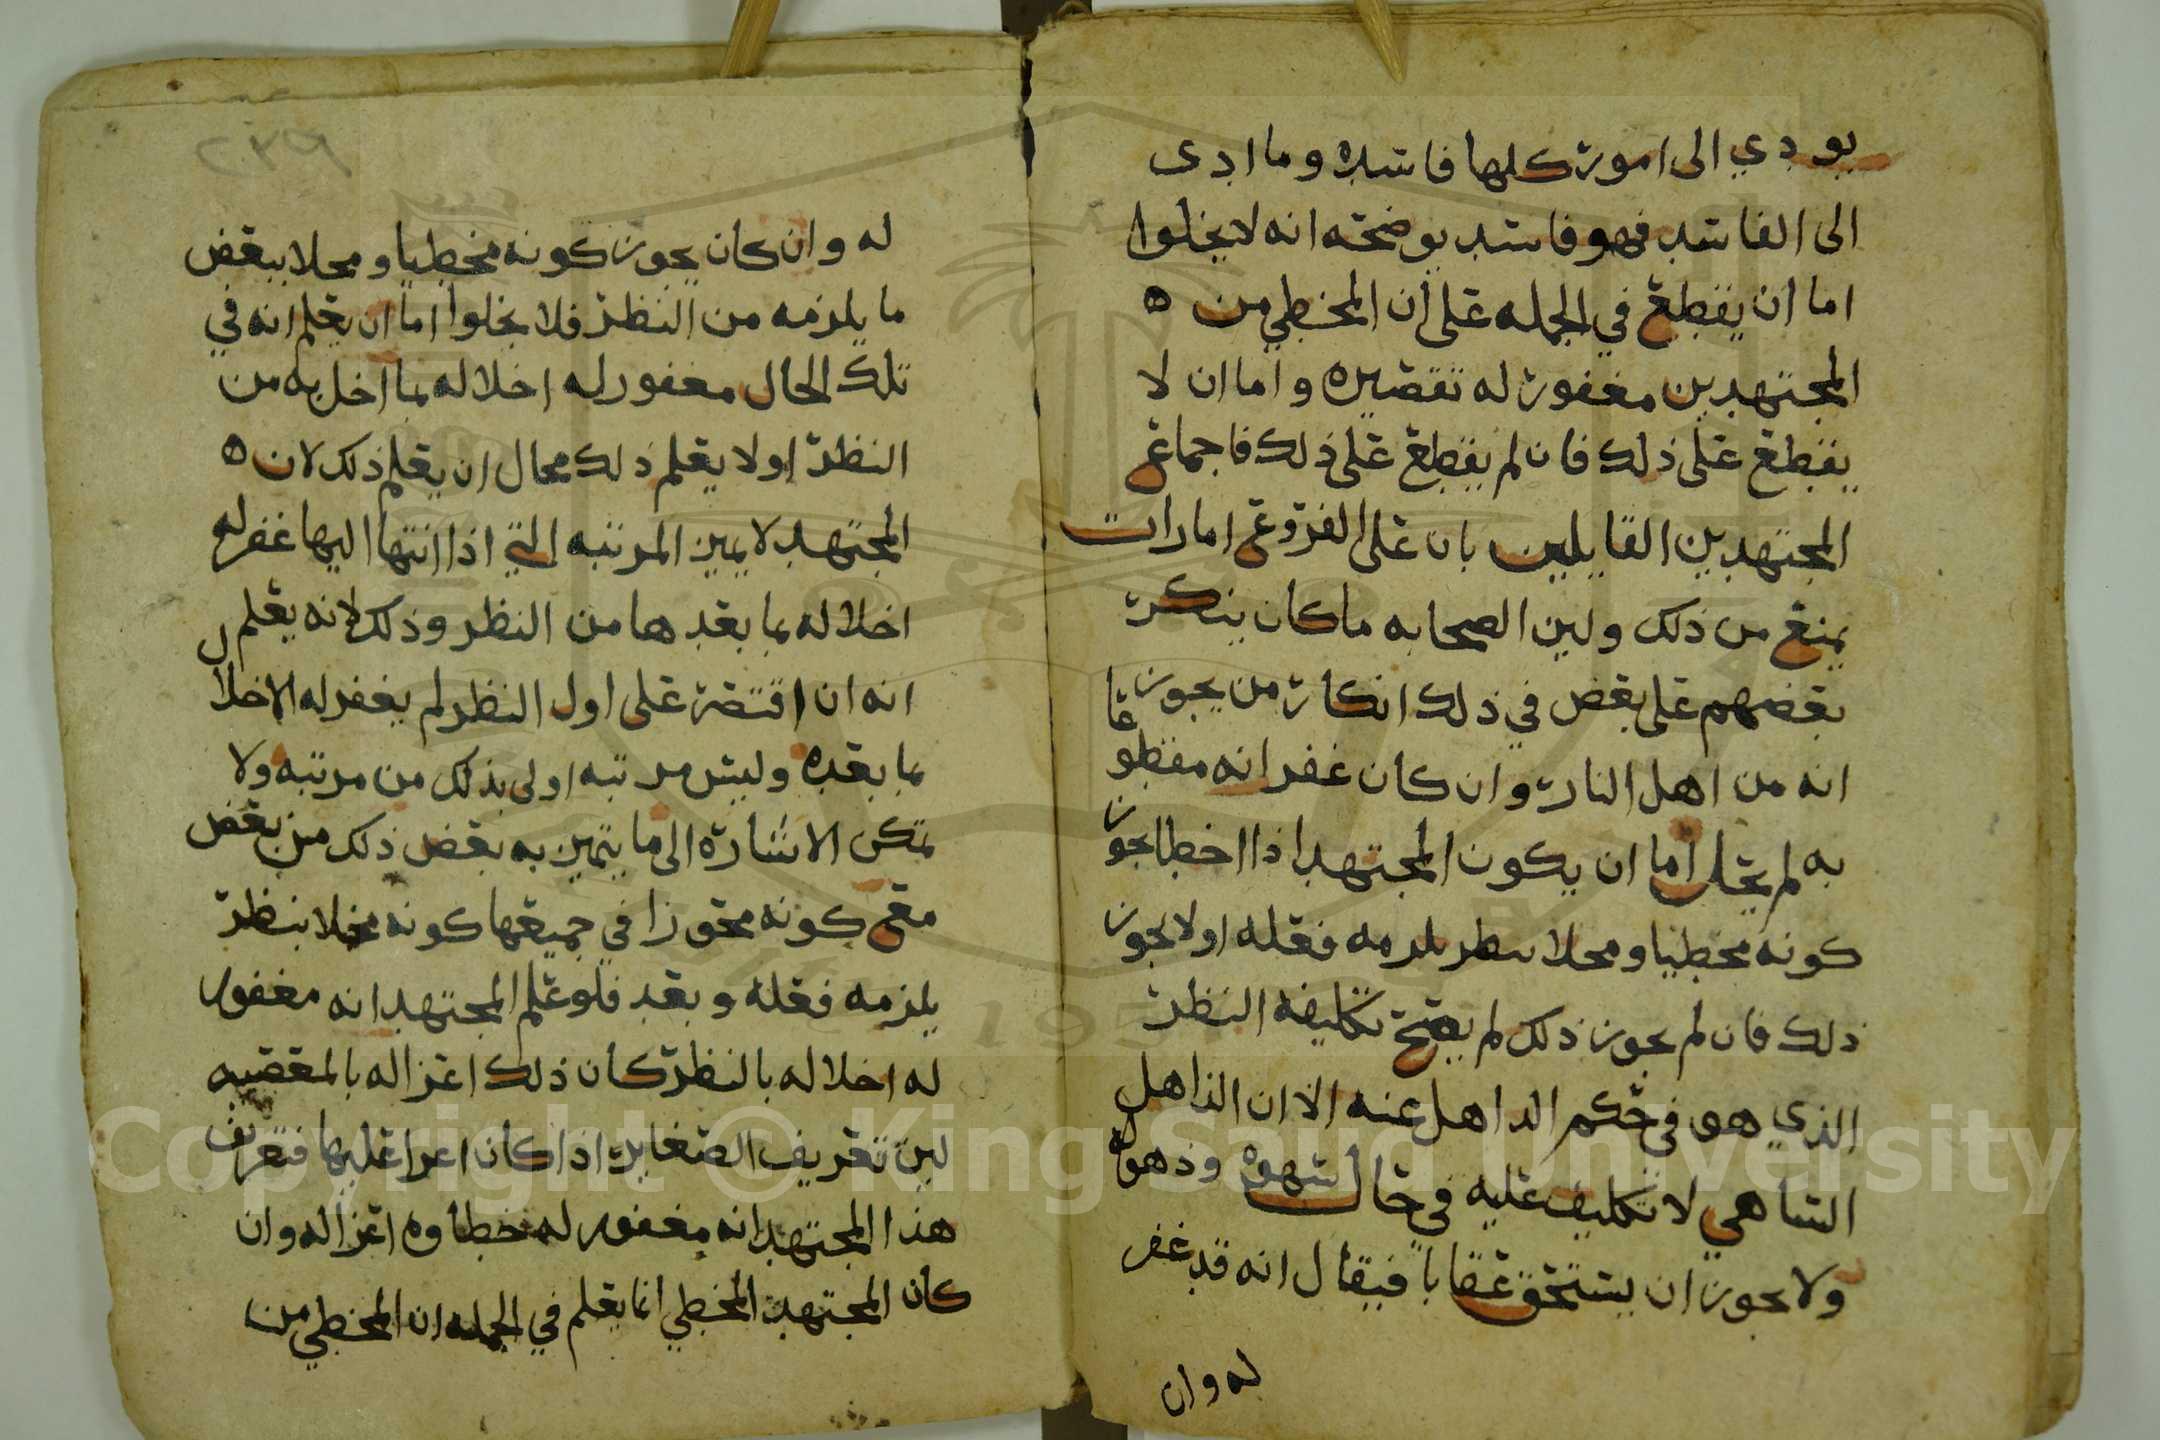 يودي الى امور كلها فاسده وما ادى
الى الفاسد فهو فاسد يوضحه انه لا يخلوا
اما ان يقطع في الجمله على أن المخطي من ه
المجتهدين مغفور له تقصيره واما ان لا
يقطع على ذلك فان لم يقطع على ذلك فاجماع
المجتهدين القايلين بان على الفروع امارات
يمنع من ذلك ولين الصحابه ما كان ينكر
بعضهم على بعض في ذلك انكار من يجوز
انه من اهل النار وان كان غفرانه مقطوعا
به لم يخل أما ان يكون المجتهد اذا اخطا يجوز
كونه مخطيا ومخلا بنظر يلزمه فعله اولا يجوز
ذلك فان لم يجوز ذلك لم يصح تكليفه النظر
الذي هو في حكم الذاهل عنه الا ان الذاهل
الساهي لا تكليف عليه في حال سهوه وذهوله
ولا يجوز ان يستحق عقاباً فيقال انه قد غفر
له وان
٢٣٩
له وان كان يجوز كونه مخطيا ومخلا ببعض
ما يلزمه من النظر فلا يخلوا اما ان يعلم انه في
تلك الحال مغفور له اخلاله بما اخل به من
النظر اولا يعلم ذلك محال ان يعلم ذلك لان ه
المجتهد لا يميز المرتبه التي اذا انتها اليها غفر له
اخلاله بما بعدها من النظر وذلك لانه يعلم
انه ان اقتصر على اول النظر لم يغفر له الاخلال
بما بعده وليس مرتبه اولى بذلك من مرتبه ولا
تمكن الاشارة الى ما يتميز به بعض ذلك من بعض
مع كونه مجوزا في جميعها كونه مخلا بنظر
يلزمه فعله وبعد فلو علم المجتهد انه مغفور
له اخلاله بالنظر كان ذلك اغراله بالمعصيه
لين تعريف الصغاير اذا كان اغرا عليها فتعريف
هذا المجتهد انه مغفور له خطاوه اغراله وان
كان المجتهد المخطي انما يعلم في الجمله ان المخطي من
Copyright © King Saud University
1957